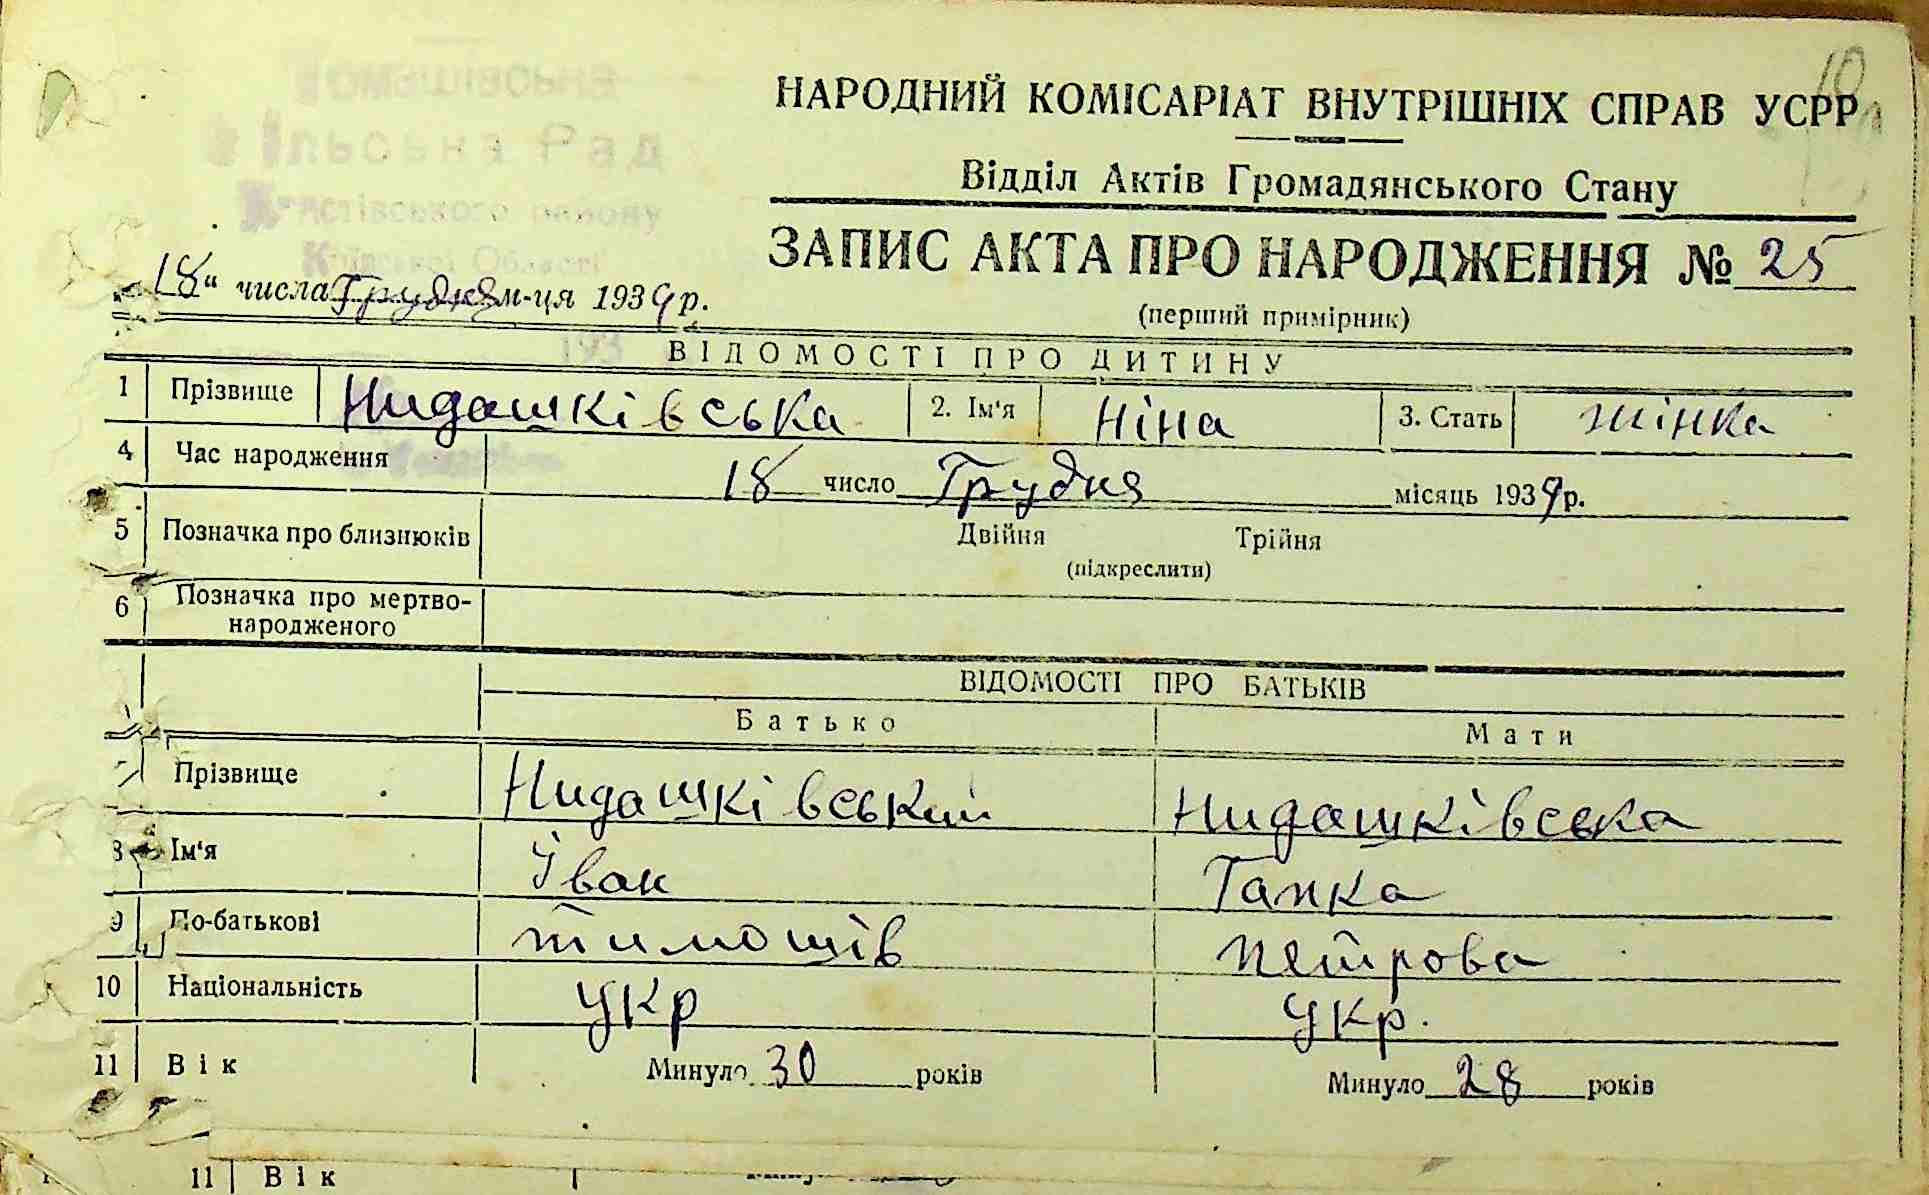 10
НАРОДНИЙ КОМІСАРІАТ ВНУТРІШНІХ СПРАВ УСРР
Томашівська
Сільська Рад
Фастівського району
Київської Області
193
Відділ Актів Громадянського Стану
ЗАПИС АКТА ПРО НАРОДЖЕННЯ № 25
(перший примірник)
18" числа Грудня м-ця 1939 р.
ВІДОМОСТІ ПРО ДИТИНУ
1 Прізвище Нидашківська 2. Ім'я Ніна 3. Стать жінка
4 Час народження 18 число Грудня місяць 1939 р.
5 Позначка про близнюків Двійня Трійня
(підкреслити)
6 Позначка про мертво-
народженого
ВІДОМОСТІ ПРО БАТЬКІВ
Батько Мати
7 Прізвище Нидашківський Нидашківська
8 Ім'я Іван Ганка
9 По-батькові тимошів петрова
10 Національність укр укр.
11 Вік Минуло 30 років Минуло 28 років
11 Вік